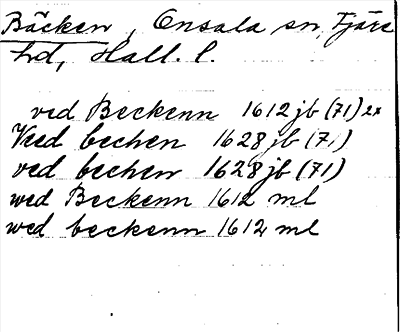 Bäcken, Onsala sn, Fjäre
hd, Hall. l.
ved Beckenn 1612 jb (71) 2x
Ved bechen 1628 jb (71)
ved bechen 1628 jb (71)
wed Beckenn 1612 ml
wed beckenn 1612 ml